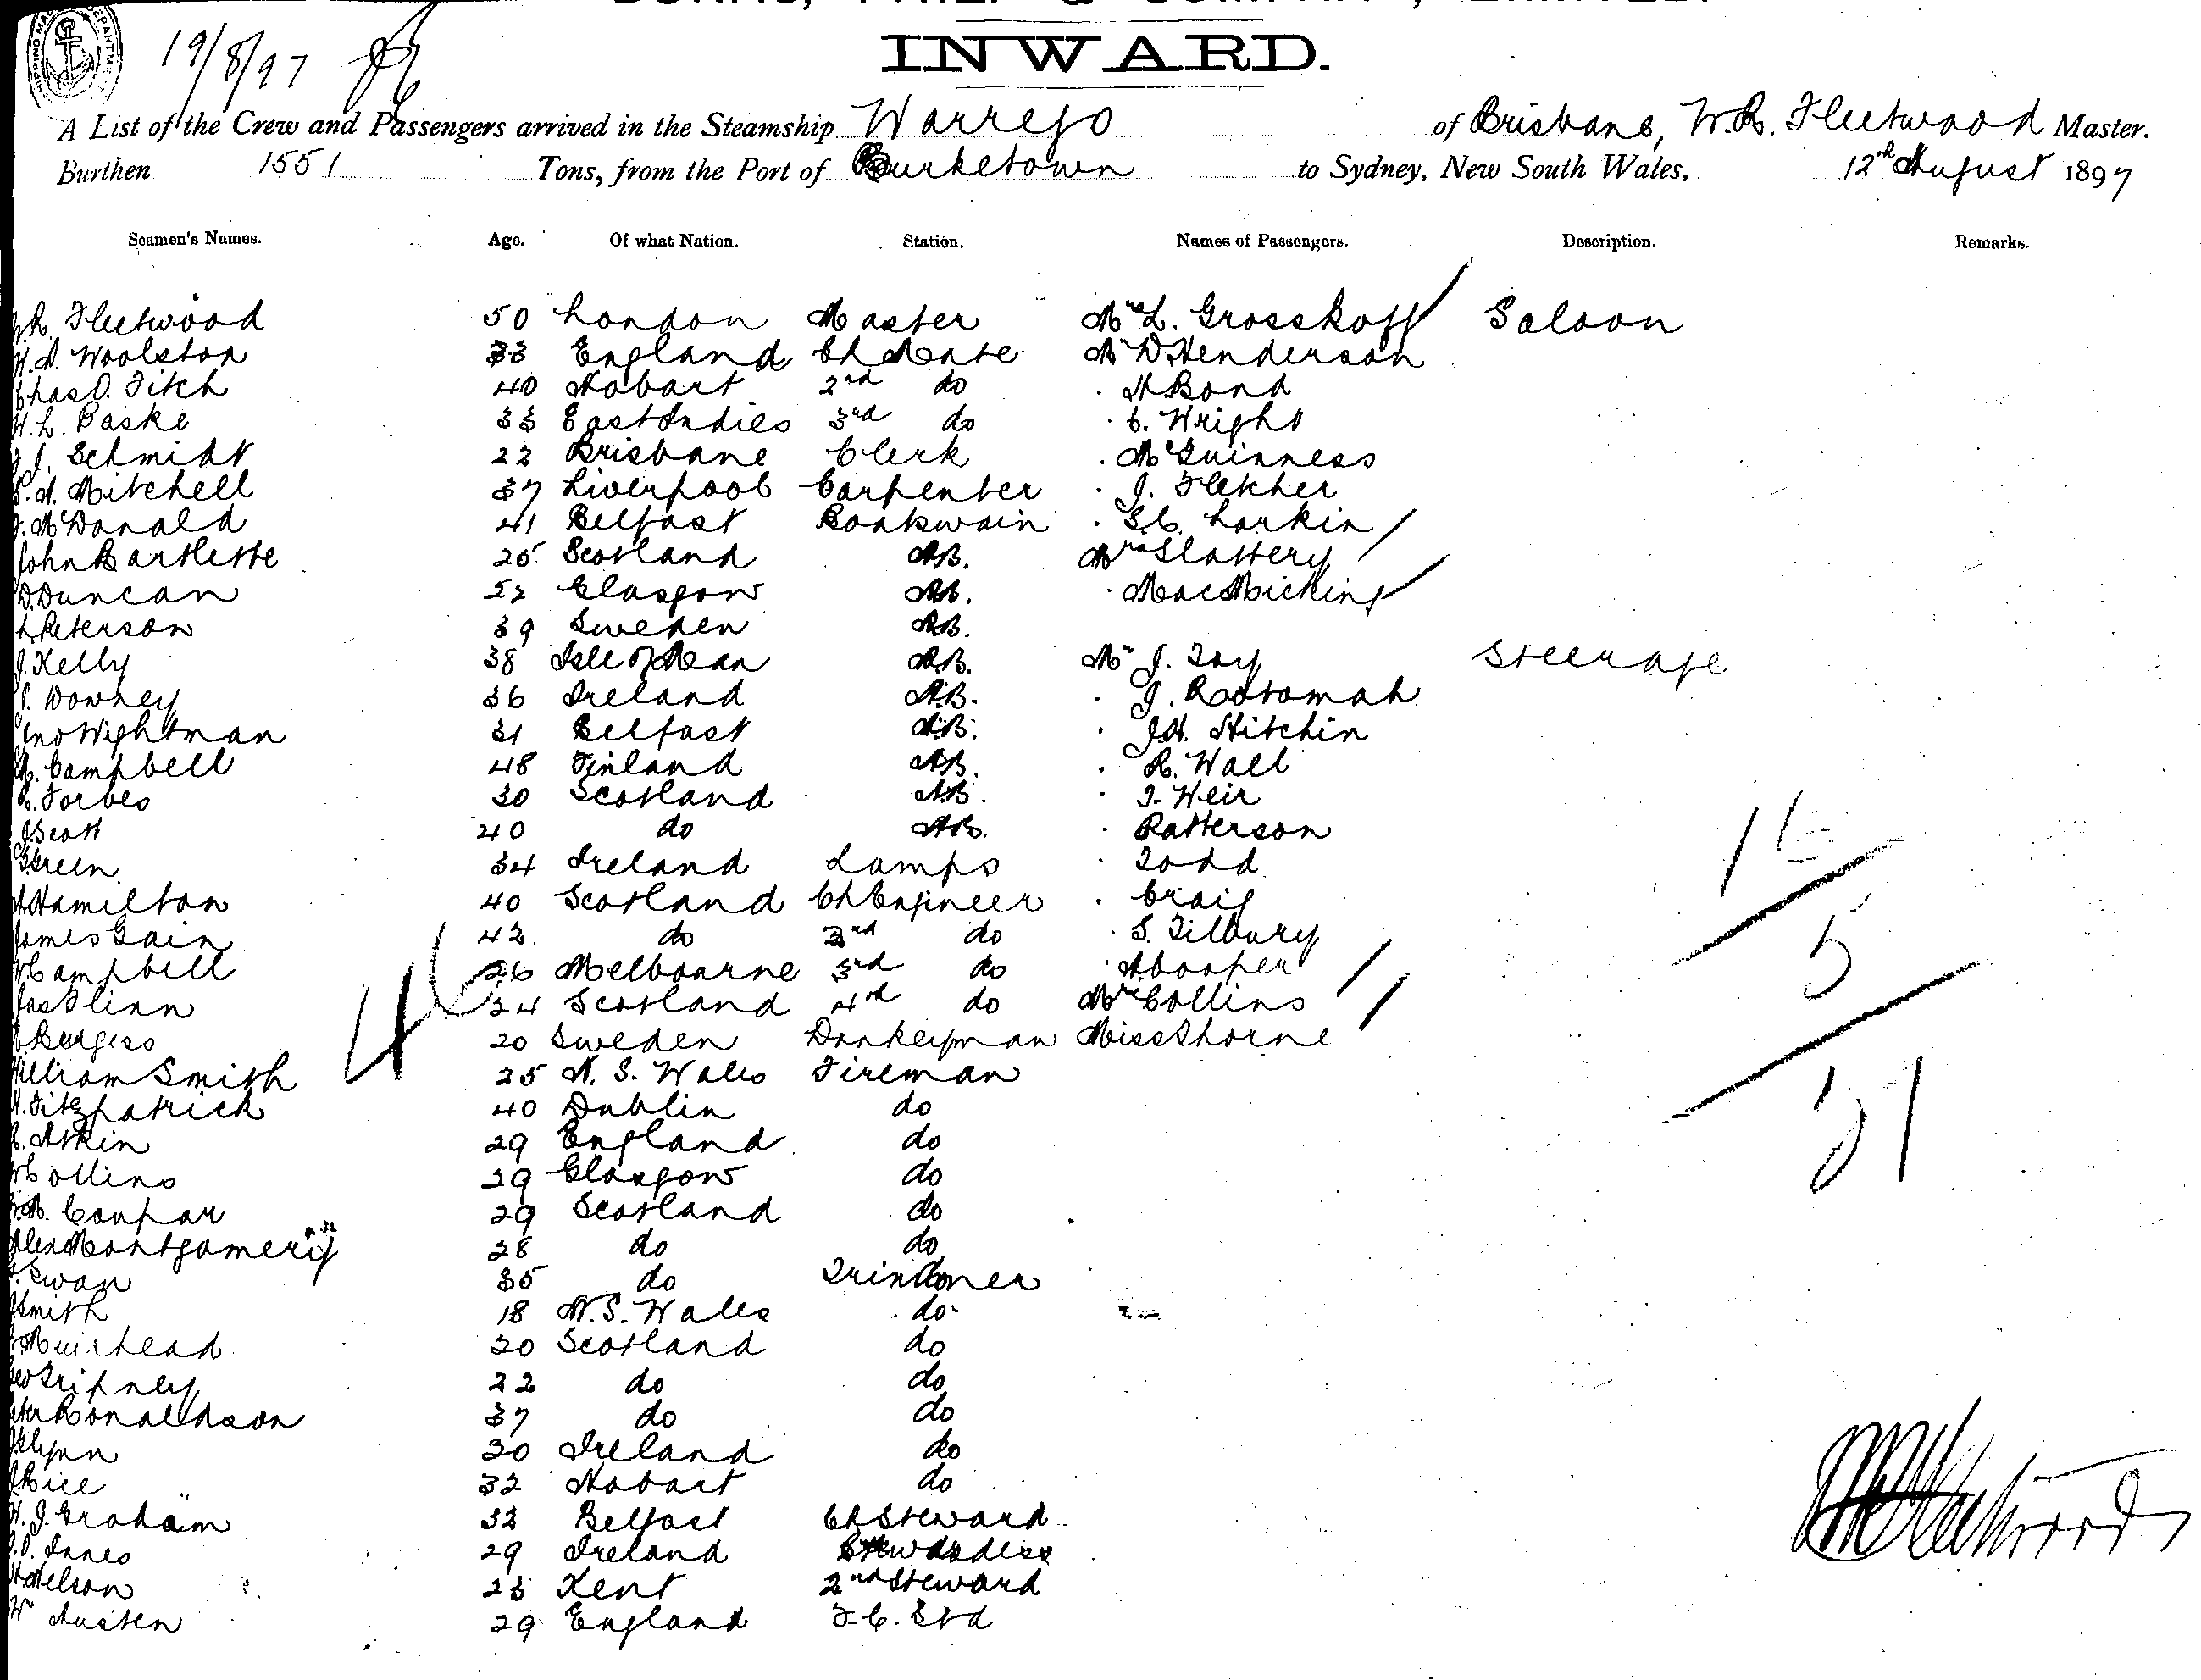 19/8/97
INWARD.
A List of the Crew and Passengers arrived in the Steamship Warrego of Brisbane, W.R. Fleetwood Master.
Burthen 1551 Tons, from the Port of Burketown to Sydney, New South Wales, 12th August 1897
Seamen's Names. Age. Of what Nation. Station. Names of Passengers. Description. Remarks.
W.R. Fleetwood 50 London Master Mrs L. Grosskopf Saloon
Woolston 33 England Ch Mate Mr D. Henderson
Chas O. Fitch 40 Hobart 2nd do " H Bond
H.L. Paske 33 East Indies 3rd do " C. Wright
J. Schmidt 22 Brisbane Clerk " McGuinness
Mitchell 37 Liverpool Carpenter " J. Fletcher
McDonald 41 Belfast Boatswain " Larkin
John Bartlette 25 Scotland AB. Mrs Slattery
D. Duncan 52 Glasgow AB. " MacMicking
Peterson 39 Sweden AB.
J. Kelly 38 Isle of Man AB. Mr J. Toy Steerage
Downey 36 Ireland AB. " J. Rootomah
Jno Wightman 31 Belfast AB. " J.H. Hitchin
Campbell 48 Finland AB. " R. Wall
R. Forbes 30 Scotland AB. " J. Weir
J Scott 40 do AB. " Patterson
Green 34 Ireland Lamps " Todd
Hamilton 40 Scotland Ch Engineer " Craig
James Gain 42 do 2nd do " S. Tilbury
Campbell 26 Melbourne 3rd do " A Cooper
Jas Flinn 24 Scotland 4th do Mrs Collins
Burgess 20 Sweden Donkeyman Miss Thorne
William Smith 25 N. S. Wales Fireman
Fitzpatrick 40 Dublin do
Askin 29 England do
Collins 29 Glasgow do
Coupar 29 Scotland do
Alex Montgomery 28 do do
Swan 35 do Trimmer
Smith 18 N.S. Wales do
Muirhead 20 Scotland do
Geo Tripney 22 do do
Peter Ronaldson 37 do do
Flynn 30 Ireland do
Rice 32 Hobart do
H. J. Graham 32 Belfast Ch Steward
Innes 29 Ireland Stewardess
Nelson 23 Kent 2nd Steward
Wm Austen 29 England F.C. Std
46
16
5
21
WR Fleetwood